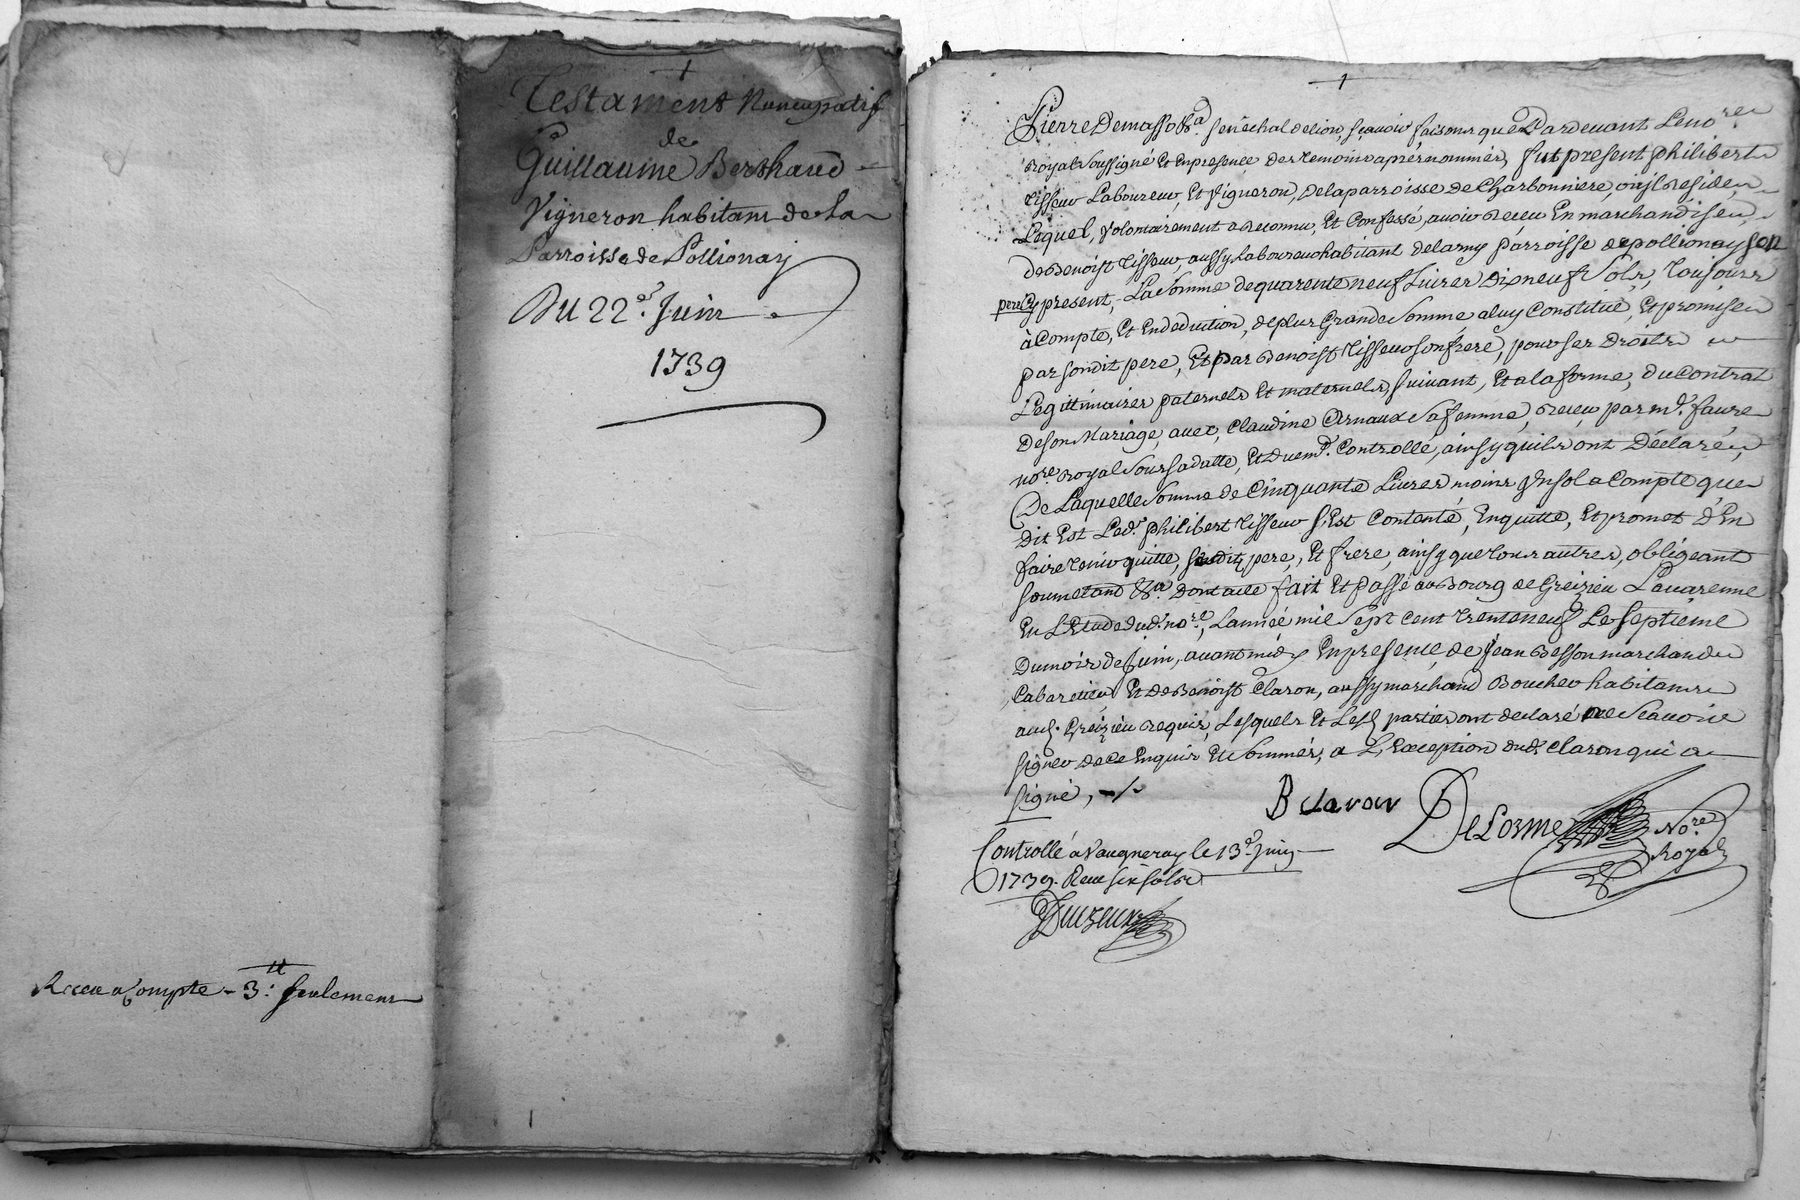 Testament Nuncupatif
de
Guillaume Berthaud
Vigneron habitant de la
Parroisse de Pollionay
Du 22e. Juin
1739
Receu a Compte - 3:tt seulement
Pierre Demasso &a. senechal de lion, sçavoir faisons que Pardevant Le nore
Royal soussigné Et En presence des temoins aprés nommés, fut present philibert
tisseur Laboureur Et Vigneron, de la parroisse de Charbonniere, où il reside,
Lequel, volontairement a Reconnu, Et Confessé, avoir Receu En marchandise,
de Benoist tisseur, aussy Laboureur habitant de lamy parroisse de pollionay son
pere cy present, La somme de quarente neuf Livres dixneuf sols, toujours
à Compte, Et En deduction, de plus Grande somme a luy Constitué, Et promise
par sondit pere, Et par Benoist tisseur son frere, pour ses droits
Legittimaires paternels Et maternels, suivant, Et a la forme, du Contrat
de son Mariage, avec, Claudine Arnaux sa femme, Receu par me. faure
nore. Royal sous sa datte, Et duemt. Controllé, ainsy quils ont déclaré,
De Laquelle somme de Cinquante Livres moins Un sol a Compte que
dit Est Led. philibert tisseur s'Est Contenté, En quitte, Et promet d'En
faire tenir quitte, sesdits pere, Et frere, ainsy que tous autres, obligeant
soumetant &a. dont acte fait Et passé au Bourg de Greizieu Lavarenne
En L'Etude dud. nore, L'année mil sept cent trente neuf Le septieme
du mois de Juin, avant midy En presence de Jean Besson marchand
Cabaretier Et de Benoist Claron, aussy marchand Boucher habitans
aud. Greizieu Requis, Lesquels Et Lesd. parties ont declaré ne sçavoir
signer de ce Enquis Et sommés, a L'Exception dud. Claron qui a
signé,
B claron
DeLorme
Nore
Royal
Controllé a Vaugneray le 13e. Juin
1739. Receu six sols